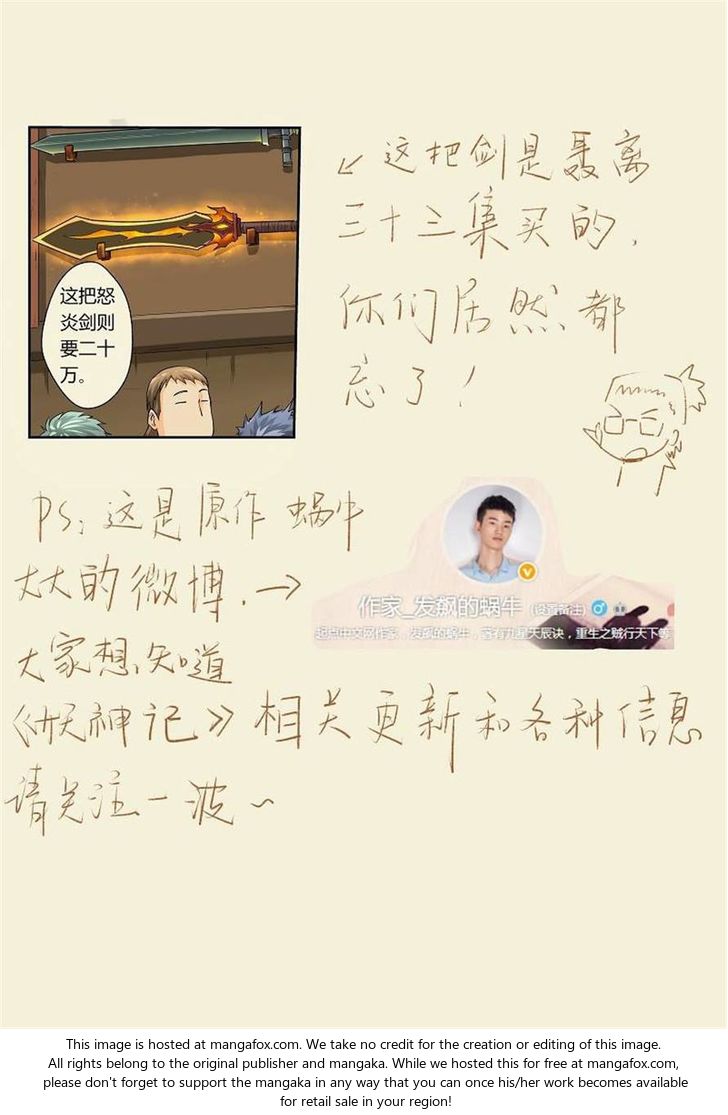 这把怒
炎剑则
要二十
万。
↙ 这把剑是聂离
三十三集买的,
你们居然都
忘了!
PS: 这是原作 蜗牛
大大的微博. →
作家_发飙的蜗牛 (设置备注)
起点中文网作家,发飙的蜗牛,著有九星天辰诀,重生之贼行天下等
大家想知道
《妖神记》相关更新和各种信息
请关注一波~
This image is hosted at mangafox.com. We take no credit for the creation or editing of this image.
All rights belong to the original publisher and mangaka. While we hosted this for free at mangafox.com,
please don't forget to support the mangaka in any way that you can once his/her work becomes available
for retail sale in your region!